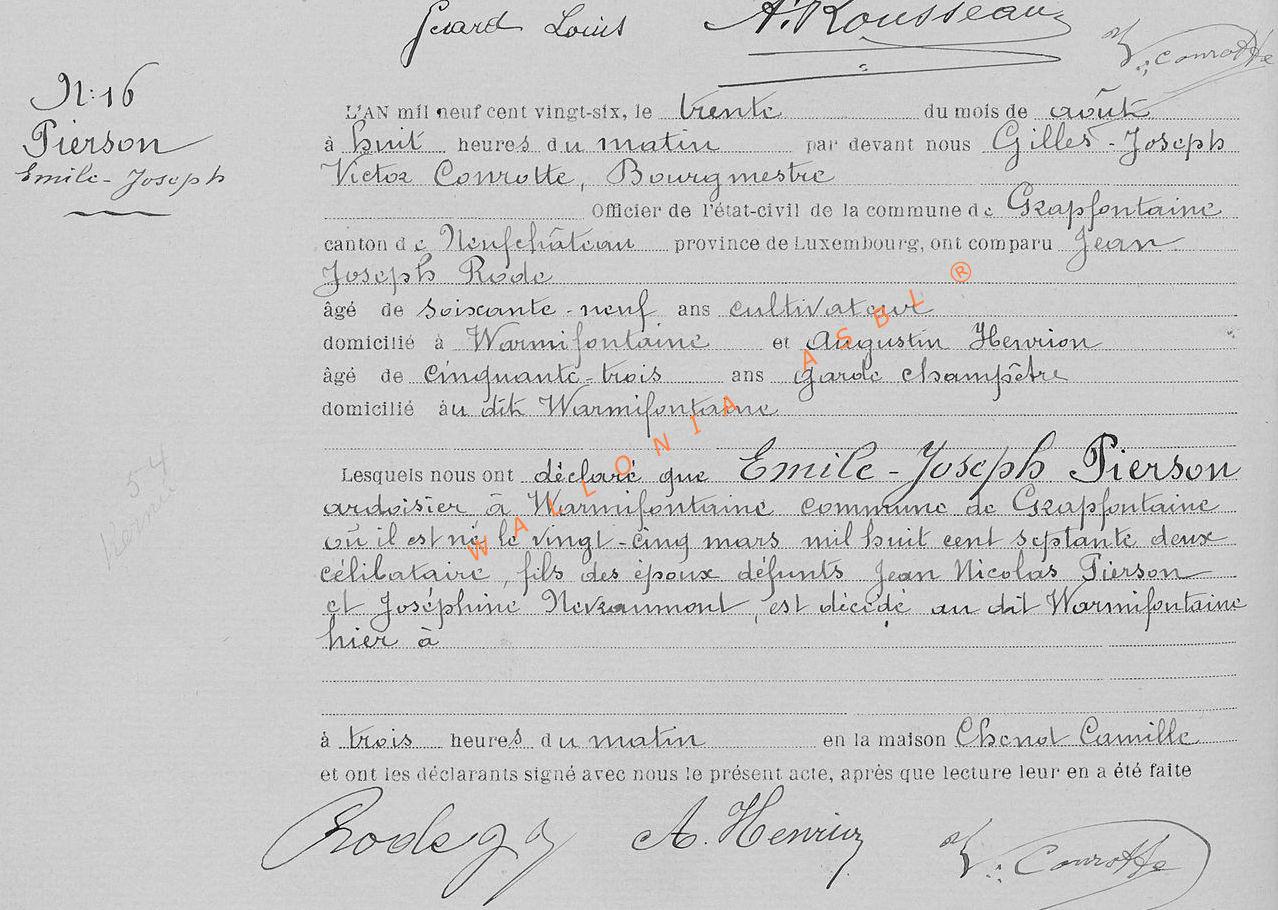 Gérard Louis A. Rousseau V. Conrotte
N: 16
Pierson
Emile-Joseph
L'AN mil neuf cent vingt-six, le trente du mois de août
à huit heures du matin par devant nous Gilles-Joseph
Victor Conrotte, Bourgmestre
Officier de l'état-civil de la commune de Grapfontaine
canton de Neufchâteau province de Luxembourg, ont comparu Jean
Joseph Rode
âgé de soixante-neuf ans cultivateur
domicilié à Warmifontaine et Augustin Henrion
âgé de cinquante-trois ans garde champêtre
domicilié au dit Warmifontaine
Lesquels nous ont déclaré que Emile-Joseph Pierson
ardoisier à Warmifontaine commune de Grapfontaine
où il est né le vingt-cinq mars mil huit cent septante deux
célibataire, fils des époux défunts Jean Nicolas Pierson
et Joséphine Nevraumont, est décédé au dit Warmifontaine
hier à
à trois heures du matin en la maison Chenot Camille
et ont les déclarants signé avec nous le présent acte, après que lecture leur en a été faite
Rode A. Henrion V. Conrotte
54
WALLONIA ASBL ®